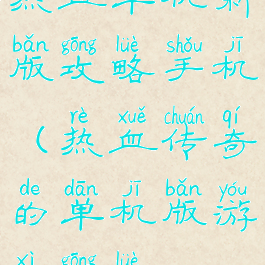 bǎn gōng lüè shǒu jī
版攻略手机
rè xuě chuán qí
（热血传奇
de dān jī bǎn yóu
的单机版游
xì gōng lüè